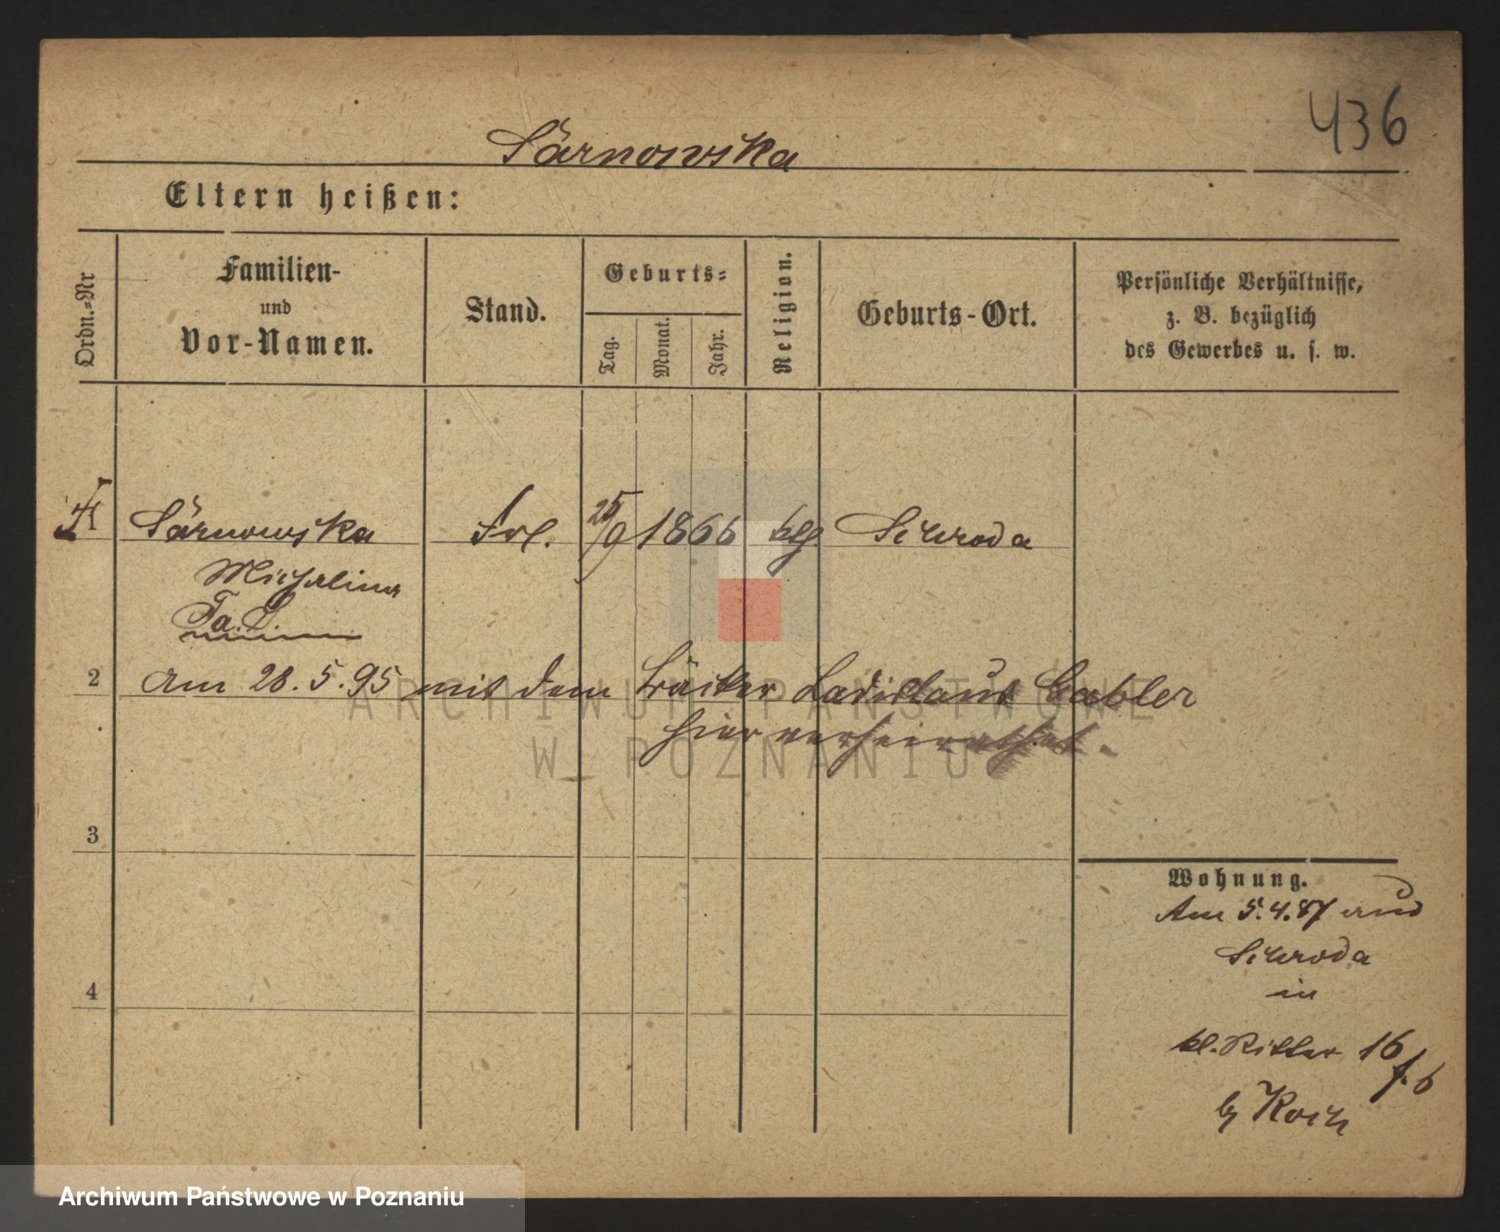 436
Särnowska
Eltern heißen:
Ordn.=Nr
Familien-
und
Vor-Namen.
Stand.
Geburts=
Tag.
Monat.
Jahr.
Religion.
Geburts-Ort.
Persönliche Verhältnisse,
z. B. bezüglich
des Gewerbes u. s. w.
Särnowska Frl. 25/9 1866 ktl. Schroda
Michalina
2 Am 28.5.95 mit dem Ladislaus Gabler
hier verheirathet.
3
4
Wohnung.
Am 5.4.87 aus
Schroda
in
kl. Ritter 16
b. Koch
ARCHIWUM PAŃSTWOWE
W POZNANIU
Archiwum Państwowe w Poznaniu